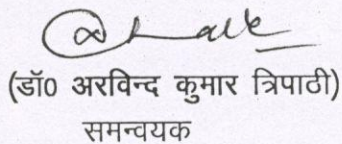 (डॉ0 अरविन्द कुमार त्रिपाठी)
समन्वयक